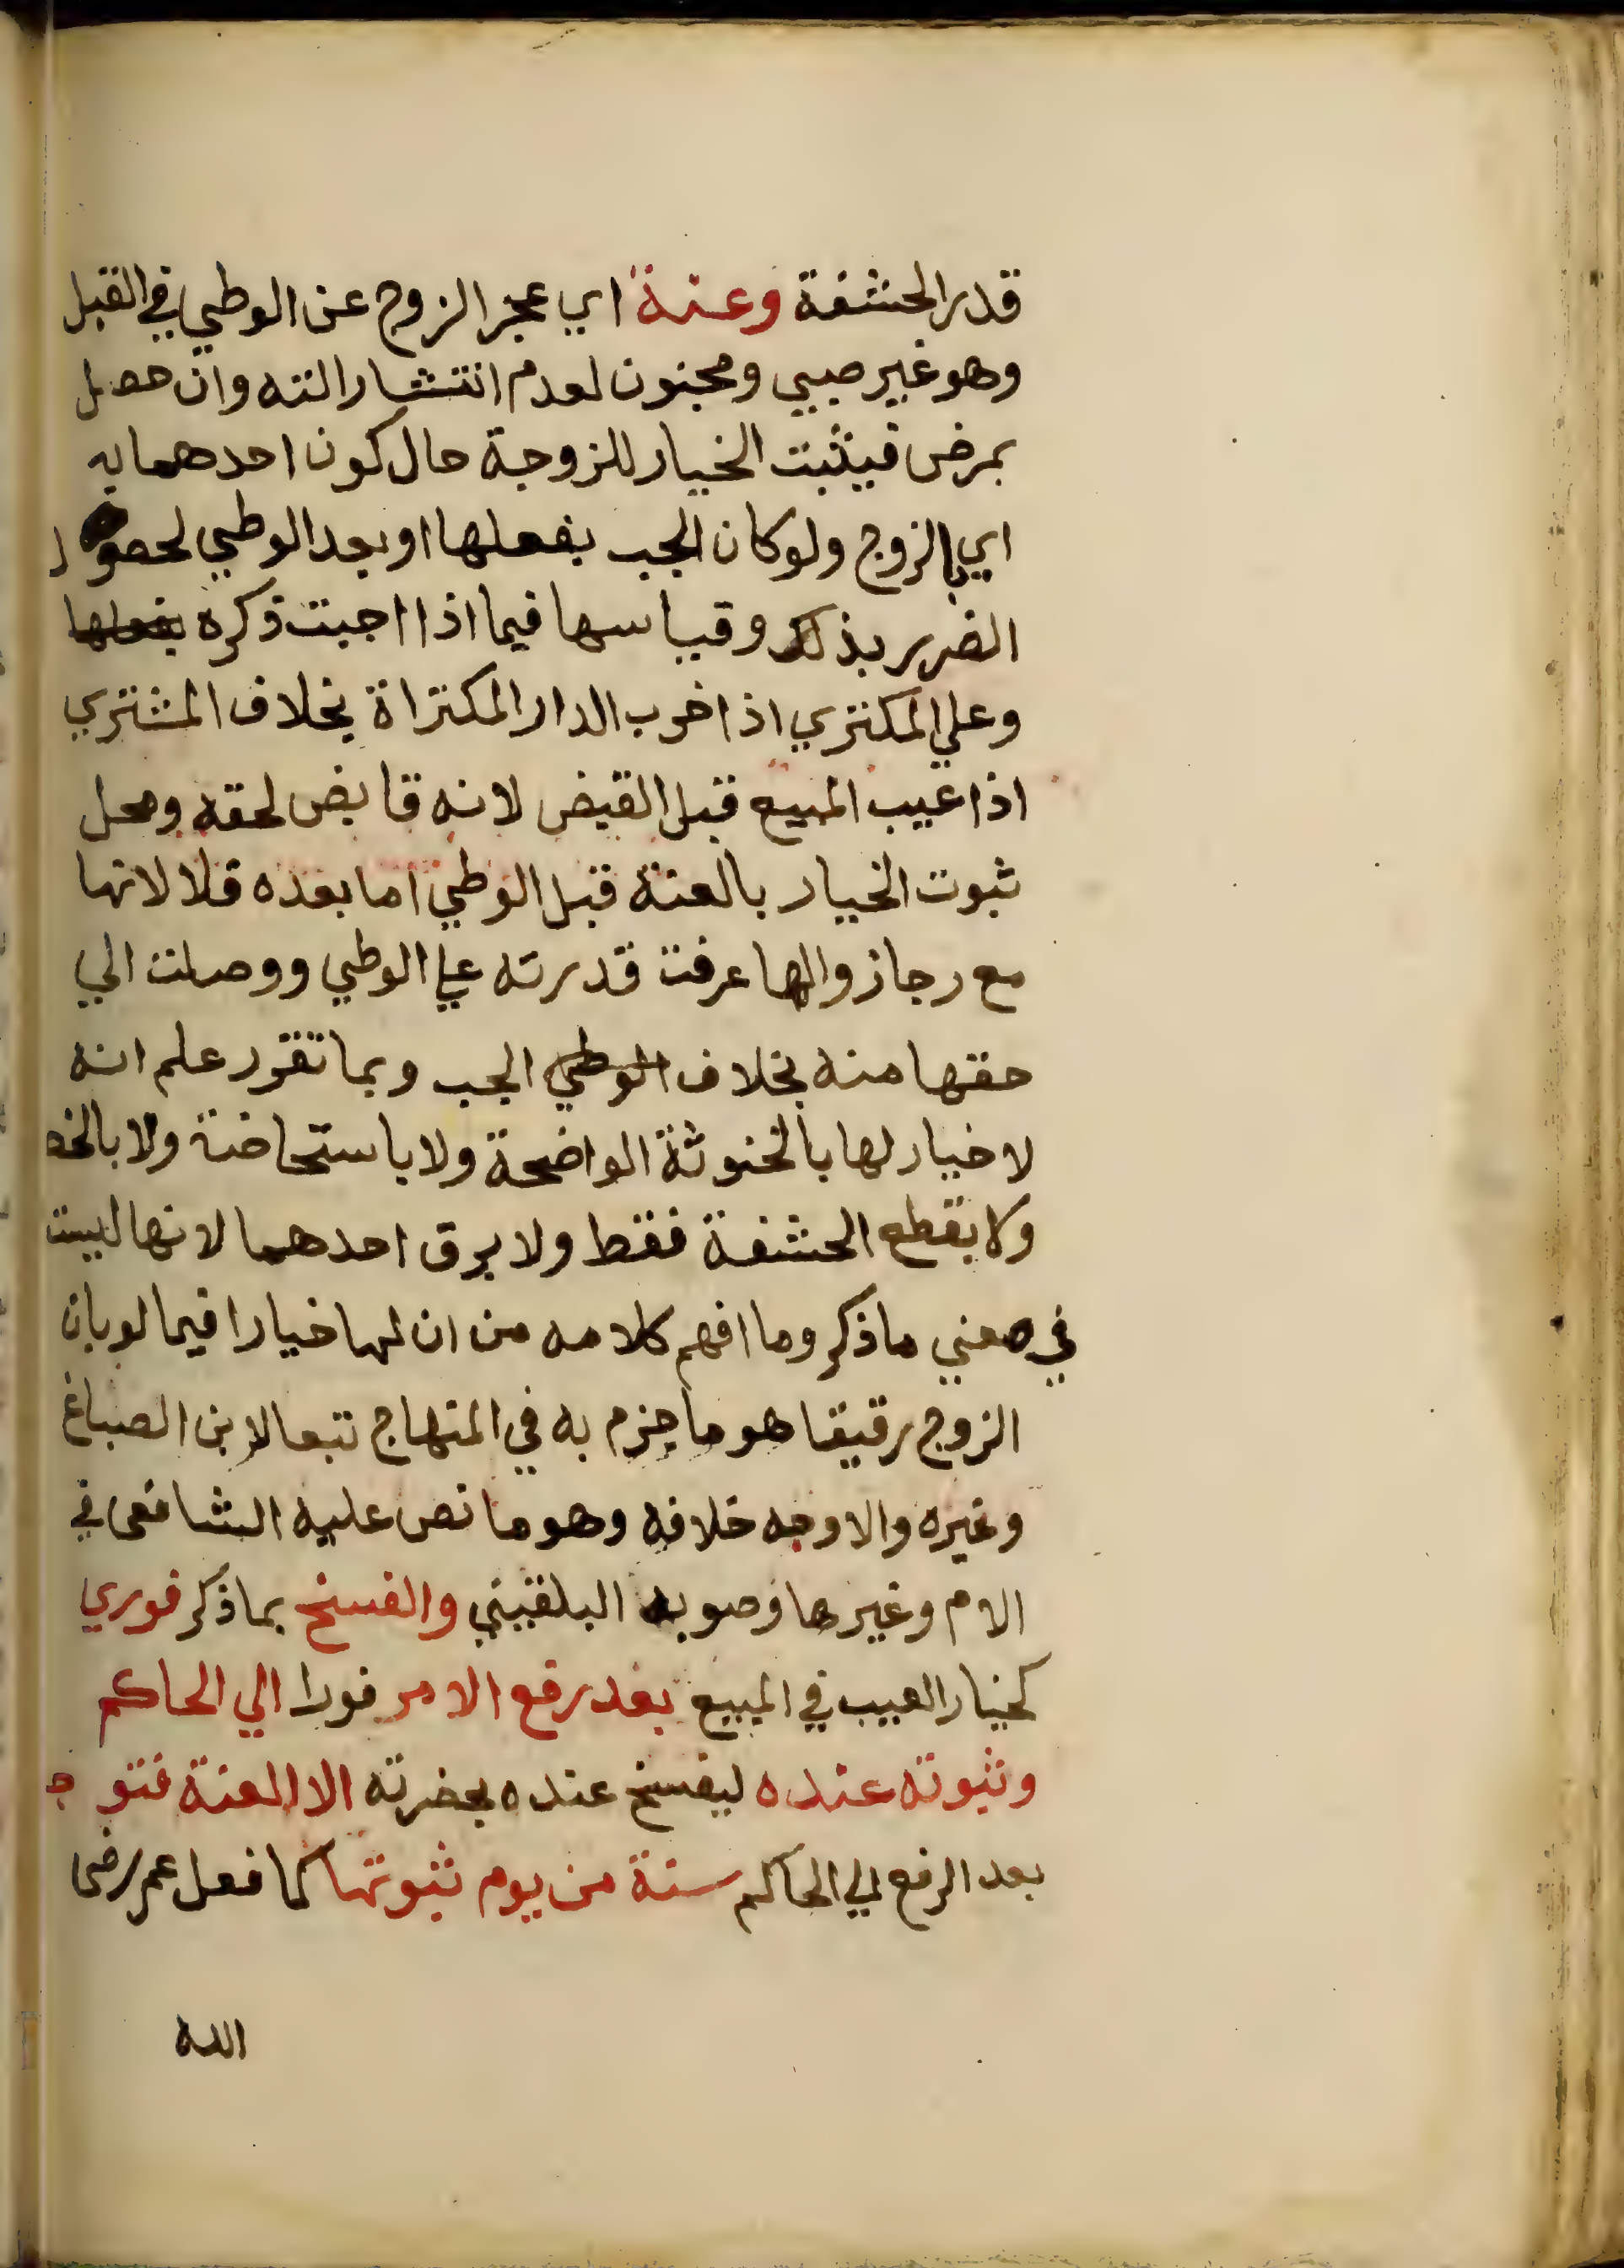 قدر الحشفة وعنة اي عجز الزوج عن الوطي في القبل
وهو غير صبي ومجنون لعدم انتشار الته وان حصل
بمرض فيثبت الخيار للزوجة حال كون احدهما به
اي بالزوج ولو كان الجب بفعلها او بعد الوطي لحصول
الضرر بذلك وقياسها فيما اذا اجبت ذكره بفعلها
وعلي المكتري اذا خرب الدار المكتراة بخلاف المشتري
اذا عيب المبيع قبل القبض لانه قابض لحقه ومحل
ثبوت الخيار بالعنة قبل الوطي اما بعده فلا لانها
مع رجا زوالها عرفت قدرته علي الوطي ووصلت الي
حقها منه بخلاف الوطي الجب وبما تقرر علم انه
لا خيار لها بالخنوثة الواضحة ولا باستحاضة ولا بالخص
ولا بقطع الحشفة فقط ولا برق احدهما لانها ليست
في معني ما ذكر وما افهم كلامه من ان لها خيارا فيما لو بان
الزوج رقيقا هو ما جزم به في المنهاج تبعا لابن الصباغ
وغيره والاوجه خلافه وهو ما نص عليه الشافعي في
الام وغيرها وصوبه البلقيني والفسخ بما ذكر فوري
كخيار العيب في المبيع بعد رفع الامر فورا الي الحاكم
وثبوته عنده ليفسخ عنده بحضرته الا العنة فتوج
بعد الرفع الي الحاكم سنة من يوم ثبوتها كما فعل عمر رضي
الله